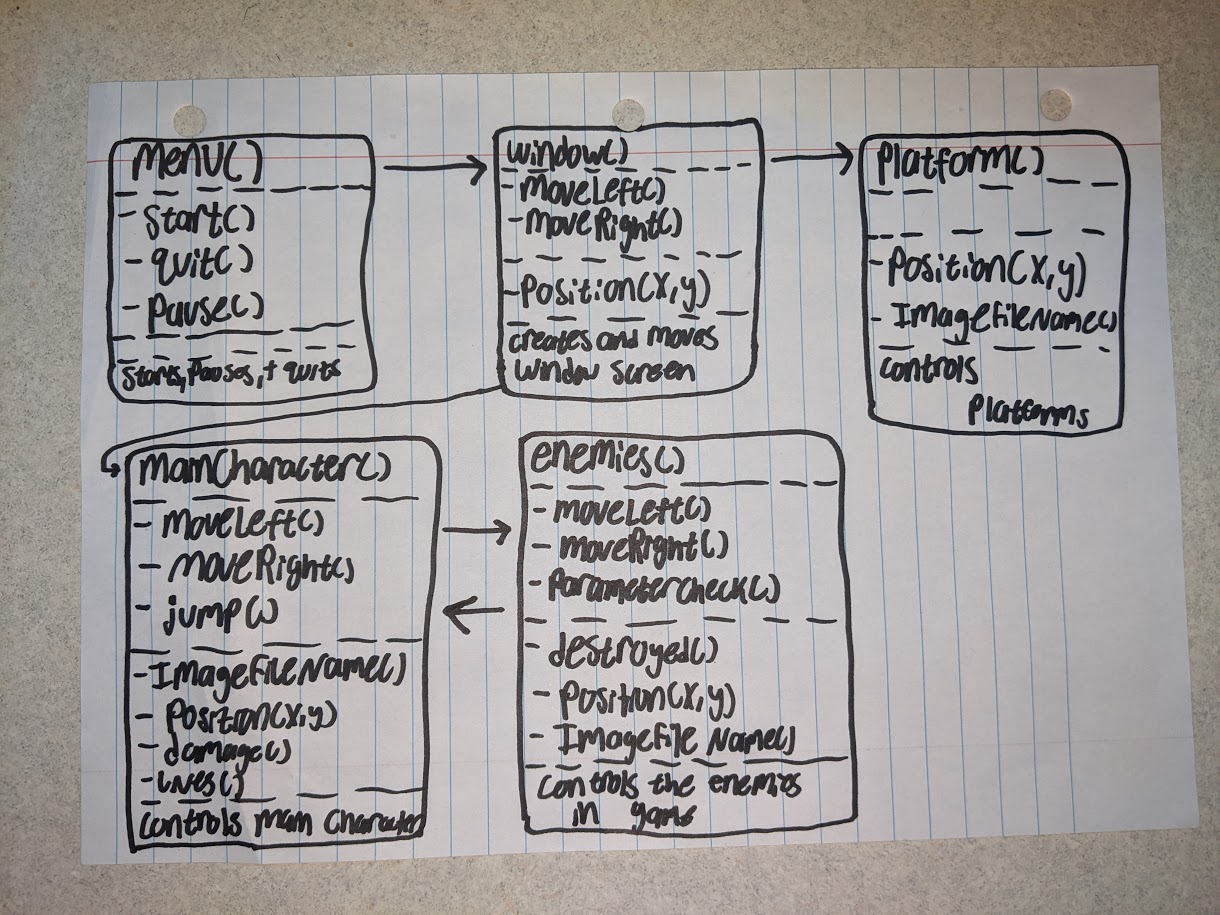 menu()
- Start()
- quit()
- Pause()
Starts, Pauses, + quits
window()
- moveLeft()
- moveRight()
- Position(X,y)
creates and moves
window screen
Platform()
- Position(X,y)
- ImagefileName()
controls
Platforms
mainCharacter()
- moveLeft()
- moveRight()
- jump()
- ImagefileName()
- Position(X,y)
- damage()
- Lives()
controls main character
enemies()
- moveLeft()
- moveRight()
- ParameterCheck()
- destroyed()
- Position(X,y)
- Imagefile Name()
controls the enemies
in game